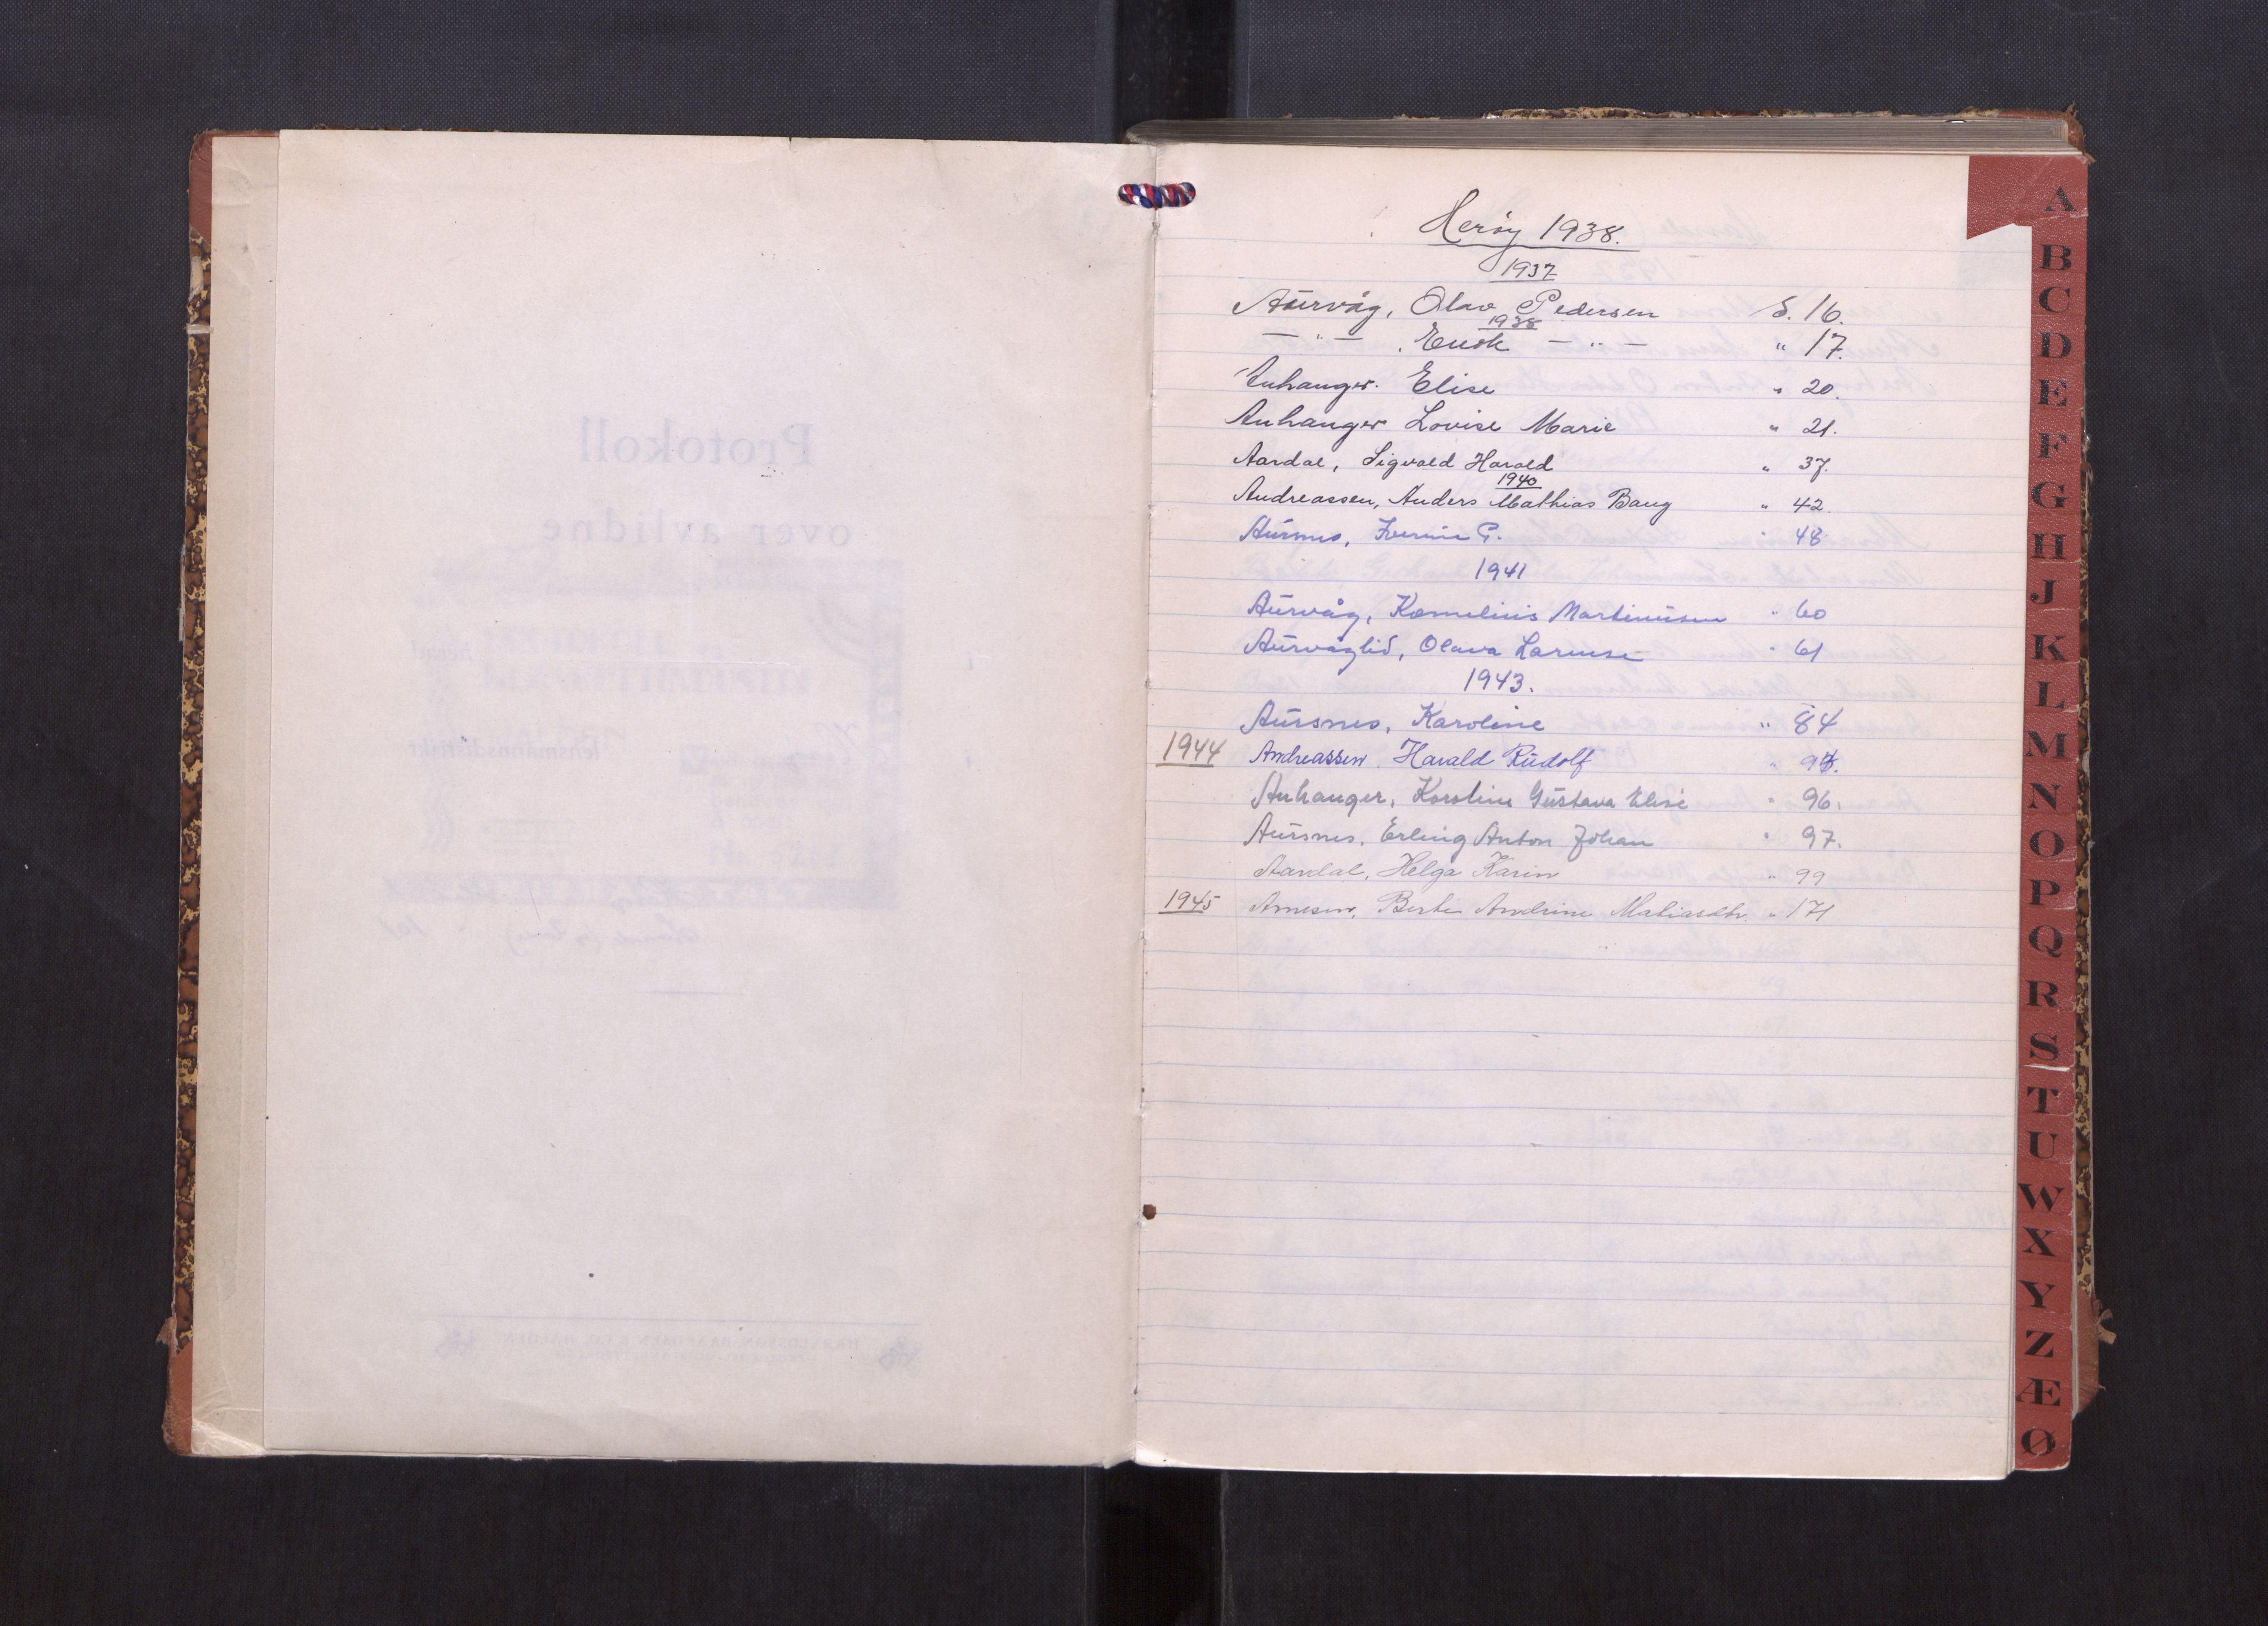 Protokoll
over avlidne
i herad
i lensmannsdistrikt
Herøy 1938.
1937
Aurvåg, Olav Pedersen S. 16.
1938
— " — . Enok — " — " 17.
Anhanger. Elise " 20.
Anhanger Lovise Marie " 21.
Aardal, Sigvald Harald " 37.
1940
Andreassen, Anders Mathias Baug " 42.
Aursnes, P. " 48
1941
Aurvåg, Kornelius Martinusen " 60
Aurvåglid, Olava Larense " 61
1943.
Aursnes, Karoline " 84
1944 Andreassen. Harald Rudolf "
Anhanger, Karoline Gustava Elise " 96.
Aursnes, Erling Anton Johan " 97.
Aardal, Helga Karin " 99
1945 Arnesen, Berte Andrine Matiasdtr. " 171
A
B
C
D
E
F
G
H
J
K
L
M
N
O
P
Q
R
S
T
U
W
X
Y
Z
Æ
Ø